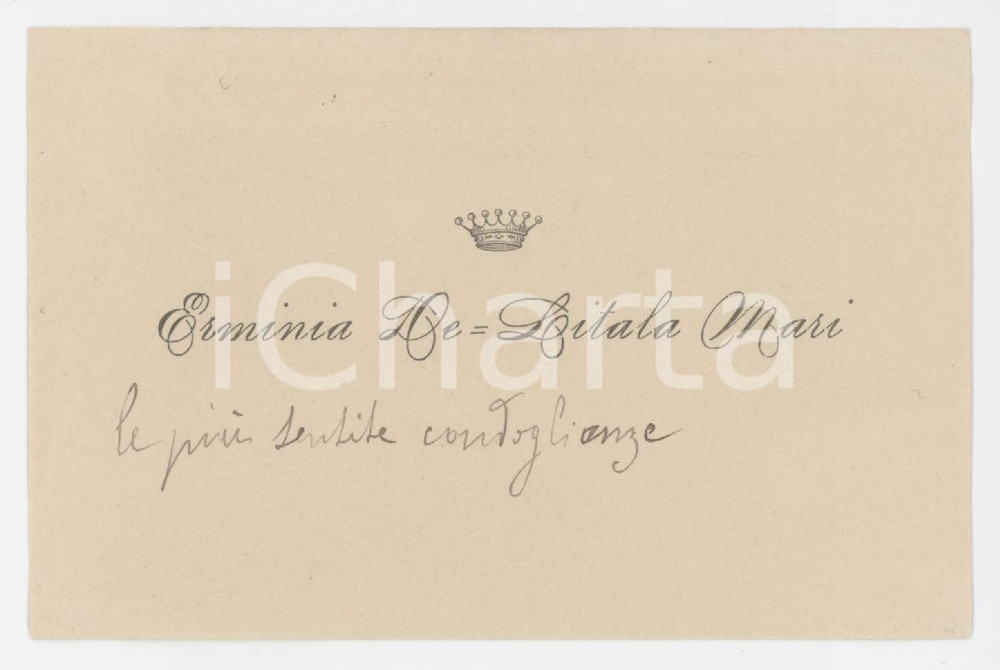 Erminia De=Litala Mari
le più sentite condoglianze
iCharta